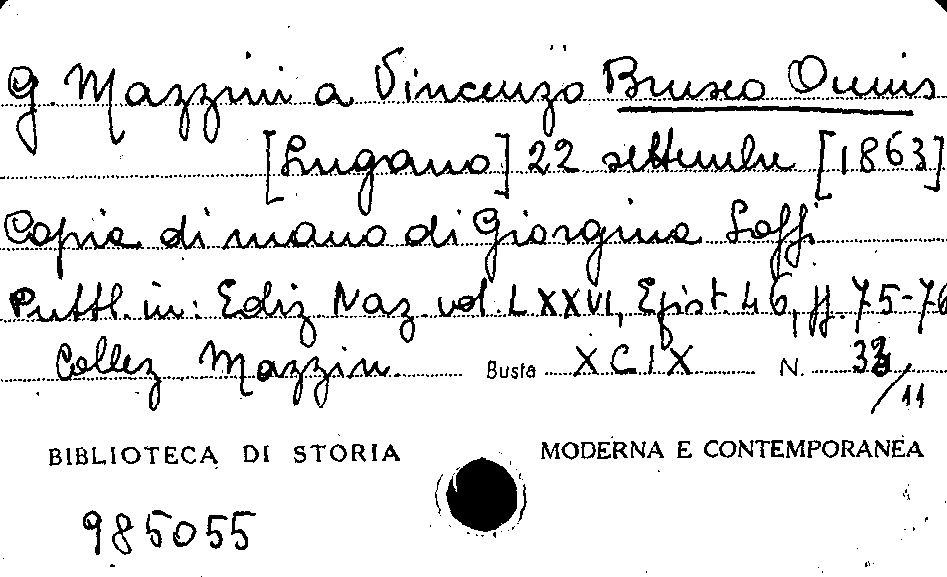 G. Mazzini a Vincenzo Brusco Onnis
[Lugano] 22 settembre [1863]
Copia di mano di Giorgina Saffi
Pubbl. in: Ediz Naz. vol. LXXVI, Epist. 46, pp. 75-76
Collez Mazzin. Busta XCIX N.
/11
BIBLIOTECA DI STORIA MODERNA E CONTEMPORANEA
985055